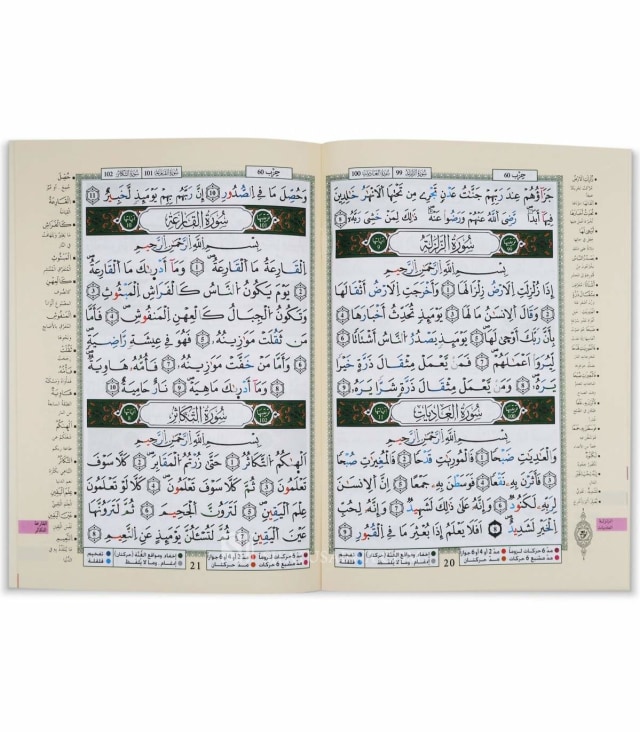 حزب 60
سورة الزلزلة 99
سورة العاديات 100
جَزَآؤُهُمْ عِندَ رَبِّهِمْ جَنَّٰتُ عَدْنٍ تَجْرِى مِن تَحْتِهَا ٱلْأَنْهَٰرُ خَٰلِدِينَ
فِيهَآ أَبَدًا ۖ رَّضِىَ ٱللَّهُ عَنْهُمْ وَرَضُوا۟ عَنْهُ ۚ ذَٰلِكَ لِمَنْ خَشِىَ رَبَّهُۥ ٨
سُورَةُ الزَّلْزَلَة
بِسْمِ ٱللَّهِ ٱلرَّحْمَٰنِ ٱلرَّحِيمِ
إِذَا زُلْزِلَتِ ٱلْأَرْضُ زِلْزَالَهَا ١ وَأَخْرَجَتِ ٱلْأَرْضُ أَثْقَالَهَا
٢ وَقَالَ ٱلْإِنسَٰنُ مَا لَهَا ٣ يَوْمَئِذٍ تُحَدِّثُ أَخْبَارَهَا ٤
بِأَنَّ رَبَّكَ أَوْحَىٰ لَهَا ٥ يَوْمَئِذٍ يَصْدُرُ ٱلنَّاسُ أَشْتَاتًا
لِّيُرَوْا۟ أَعْمَٰلَهُمْ ٦ فَمَن يَعْمَلْ مِثْقَالَ ذَرَّةٍ خَيْرًا
يَرَهُۥ ٧ وَمَن يَعْمَلْ مِثْقَالَ ذَرَّةٍ شَرًّا يَرَهُۥ ٨
سُورَةُ الْعَادِيَات
بِسْمِ ٱللَّهِ ٱلرَّحْمَٰنِ ٱلرَّحِيمِ
وَٱلْعَٰدِيَٰتِ ضَبْحًا ١ فَٱلْمُورِيَٰتِ قَدْحًا ٢ فَٱلْمُغِيرَٰتِ صُبْحًا
٣ فَأَثَرْنَ بِهِۦ نَقْعًا ٤ فَوَسَطْنَ بِهِۦ جَمْعًا ٥ إِنَّ ٱلْإِنسَٰنَ
لِرَبِّهِۦ لَكَنُودٌ ٦ وَإِنَّهُۥ عَلَىٰ ذَٰلِكَ لَشَهِيدٌ ٧ وَإِنَّهُۥ لِحُبِّ
ٱلْخَيْرِ لَشَدِيدٌ ٨ أَفَلَا يَعْلَمُ إِذَا بُعْثِرَ مَا فِى ٱلْقُبُورِ ٩
20
حزب 60
سورة القارعة 101
سورة التكاثر 102
وَحُصِّلَ مَا فِى ٱلصُّدُورِ ١٠ إِنَّ رَبَّهُم بِهِمْ يَوْمَئِذٍ لَّخَبِيرٌۢ ١١
سُورَةُ الْقَارِعَة
بِسْمِ ٱللَّهِ ٱلرَّحْمَٰنِ ٱلرَّحِيمِ
ٱلْقَارِعَةُ ١ مَا ٱلْقَارِعَةُ ٢ وَمَآ أَدْرَىٰكَ مَا ٱلْقَارِعَةُ
٣ يَوْمَ يَكُونُ ٱلنَّاسُ كَٱلْفَرَاشِ ٱلْمَبْثُوثِ ٤
وَتَكُونُ ٱلْجِبَالُ كَٱلْعِهْنِ ٱلْمَنفُوشِ ٥ فَأَمَّا
مَن ثَقُلَتْ مَوَٰزِينُهُۥ ٦ فَهُوَ فِى عِيشَةٍ رَّاضِيَةٍ
٧ وَأَمَّا مَنْ خَفَّتْ مَوَٰزِينُهُۥ ٨ فَأُمُّهُۥ هَاوِيَةٌ
٩ وَمَآ أَدْرَىٰكَ مَا هِيَهْ ١٠ نَارٌ حَامِيَةٌۢ ١١
سُورَةُ التَّكَاثُر
بِسْمِ ٱللَّهِ ٱلرَّحْمَٰنِ ٱلرَّحِيمِ
أَلْهَىٰكُمُ ٱلتَّكَاثُرُ ١ حَتَّىٰ زُرْتُمُ ٱلْمَقَابِرَ ٢ كَلَّا سَوْفَ
تَعْلَمُونَ ٣ ثُمَّ كَلَّا سَوْفَ تَعْلَمُونَ ٤ كَلَّا لَوْ تَعْلَمُونَ
عِلْمَ ٱلْيَقِينِ ٥ لَتَرَوُنَّ ٱلْجَحِيمَ ٦ ثُمَّ لَتَرَوُنَّهَا
عَيْنَ ٱلْيَقِينِ ٧ ثُمَّ لَتُسْـَٔلُنَّ يَوْمَئِذٍ عَنِ ٱلنَّعِيمِ ٨
21